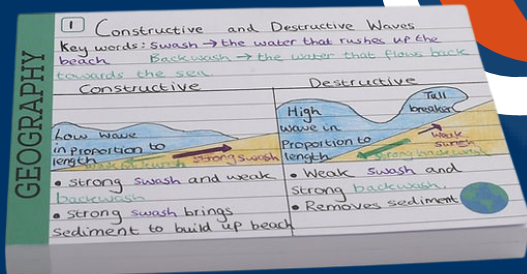 GEOGRAPHY
1 Constructive and Destructive Waves
Key words: Swash → the water that rushes up the
beach Backwash → the water that flows back
towards the sea.
Constructive
Low wave
in proportion to
length
weak backwash
strong swash
• Strong swash and weak
backwash
• Strong swash brings
sediment to build up beach
Destructive
High
wave in
Proportion to
length
Tall
breaker
weak
swash
strong backwash
• Weak swash and
strong backwash.
• Removes sediment